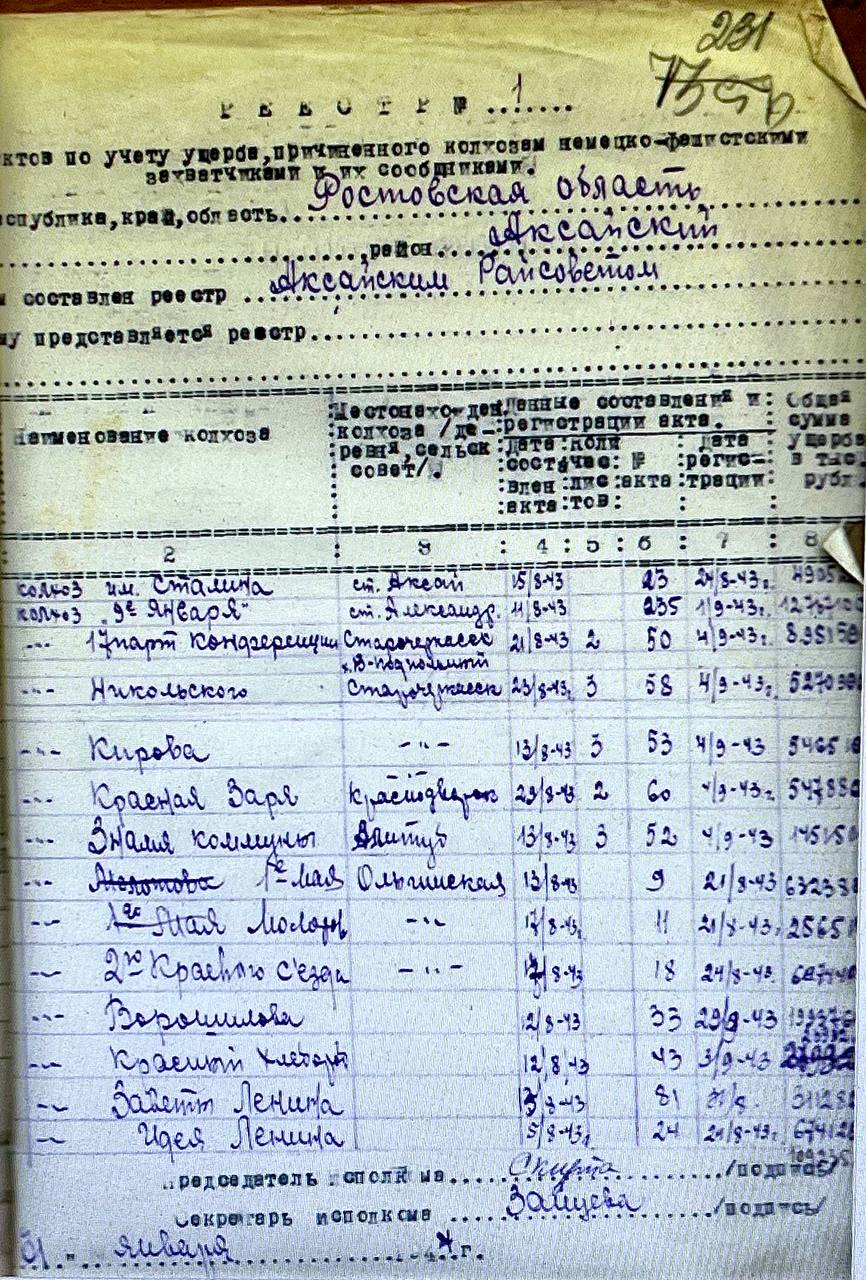 231
РЕЕСТР № ..1.....
ктов по учету ущерба, причиненного колхозам немецко-фашистскими
захватчиками и их сообщниками.
еспублика, край, область. Ростовская область
район. Аксайский
м составлен реестр Аксайским Райсоветом
му представляется реестр
Наименование колхоза : Местонахожден. колхоза /деревня, сельсовет/. : Данные составления и регистрации акта. : Общая сумма ущерба в тыс. рубл.
дата составлен акта : коли час. лис тов : № акта : дата регистрации
: 2 : 3 : 4 : 5 : 6 : 7 : 8
колхоз им. Сталина ст. Аксай 15/8-43 23 24/8-43г.
колхоз "9е Января" ст. Александр. 11/8-43 235 1/9-43г.
-"- 17 парт конференции Старочеркасск 21/8-43 2 50 4/9-43г.
х. В-Подпольный
-"- Никольского Старочеркасск 23/8-43г. 3 58 4/9-43г.
-"- Кирова -"- 13/8-43 3 53 4/9-43
-"- Красная Заря 29/8-43 2 60 4/9-43г.
-"- Знамя коммуны 13/8-43 3 52 4/9-43
-"- Молотова 1е Мая Ольгинская 13/8-43 9 21/8-43
-"- 1го Мая Молотов -"- 17/8-43г. 11 21/8-43г.
-"- 2го Краевого с'езда -"- 17/8-43 18 24/8-43
-"- Ворошилова 12/8-43 33 29/9-43
-"- Красный Хлебороб 12/8-43 43 3/9-43
-"- Заветы Ленина 13/8-43 81
-"- Идея Ленина 5/8-43г. 24 21/8-43г.
Председатель исполкома /подпись/
Секретарь исполкома Зайцева /подпись/
января 1944г.